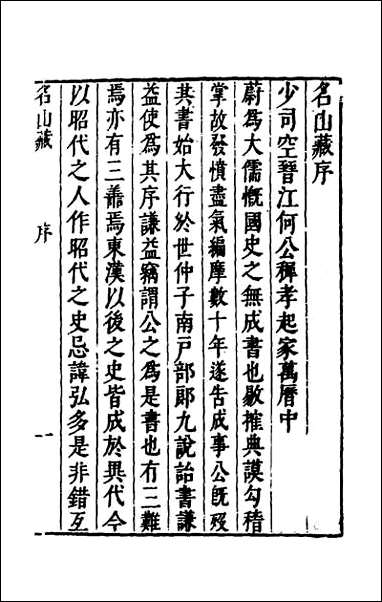 名山藏序
少司空晉江何公穉孝起家萬曆中
蔚爲大儒慨國史之無成書也敭搉典謨勾稽
掌故發憤盡氣編摩數十年遂告成事公旣歿
其書始大行於世仲子南戶部郞九說詒書謙
益使爲其序謙益竊謂公之爲是書也有三難
焉亦有三善焉東漢以後之史皆成於異代今
以昭代之人作昭代之史忌諱弘多是非錯互
名山藏 序 一